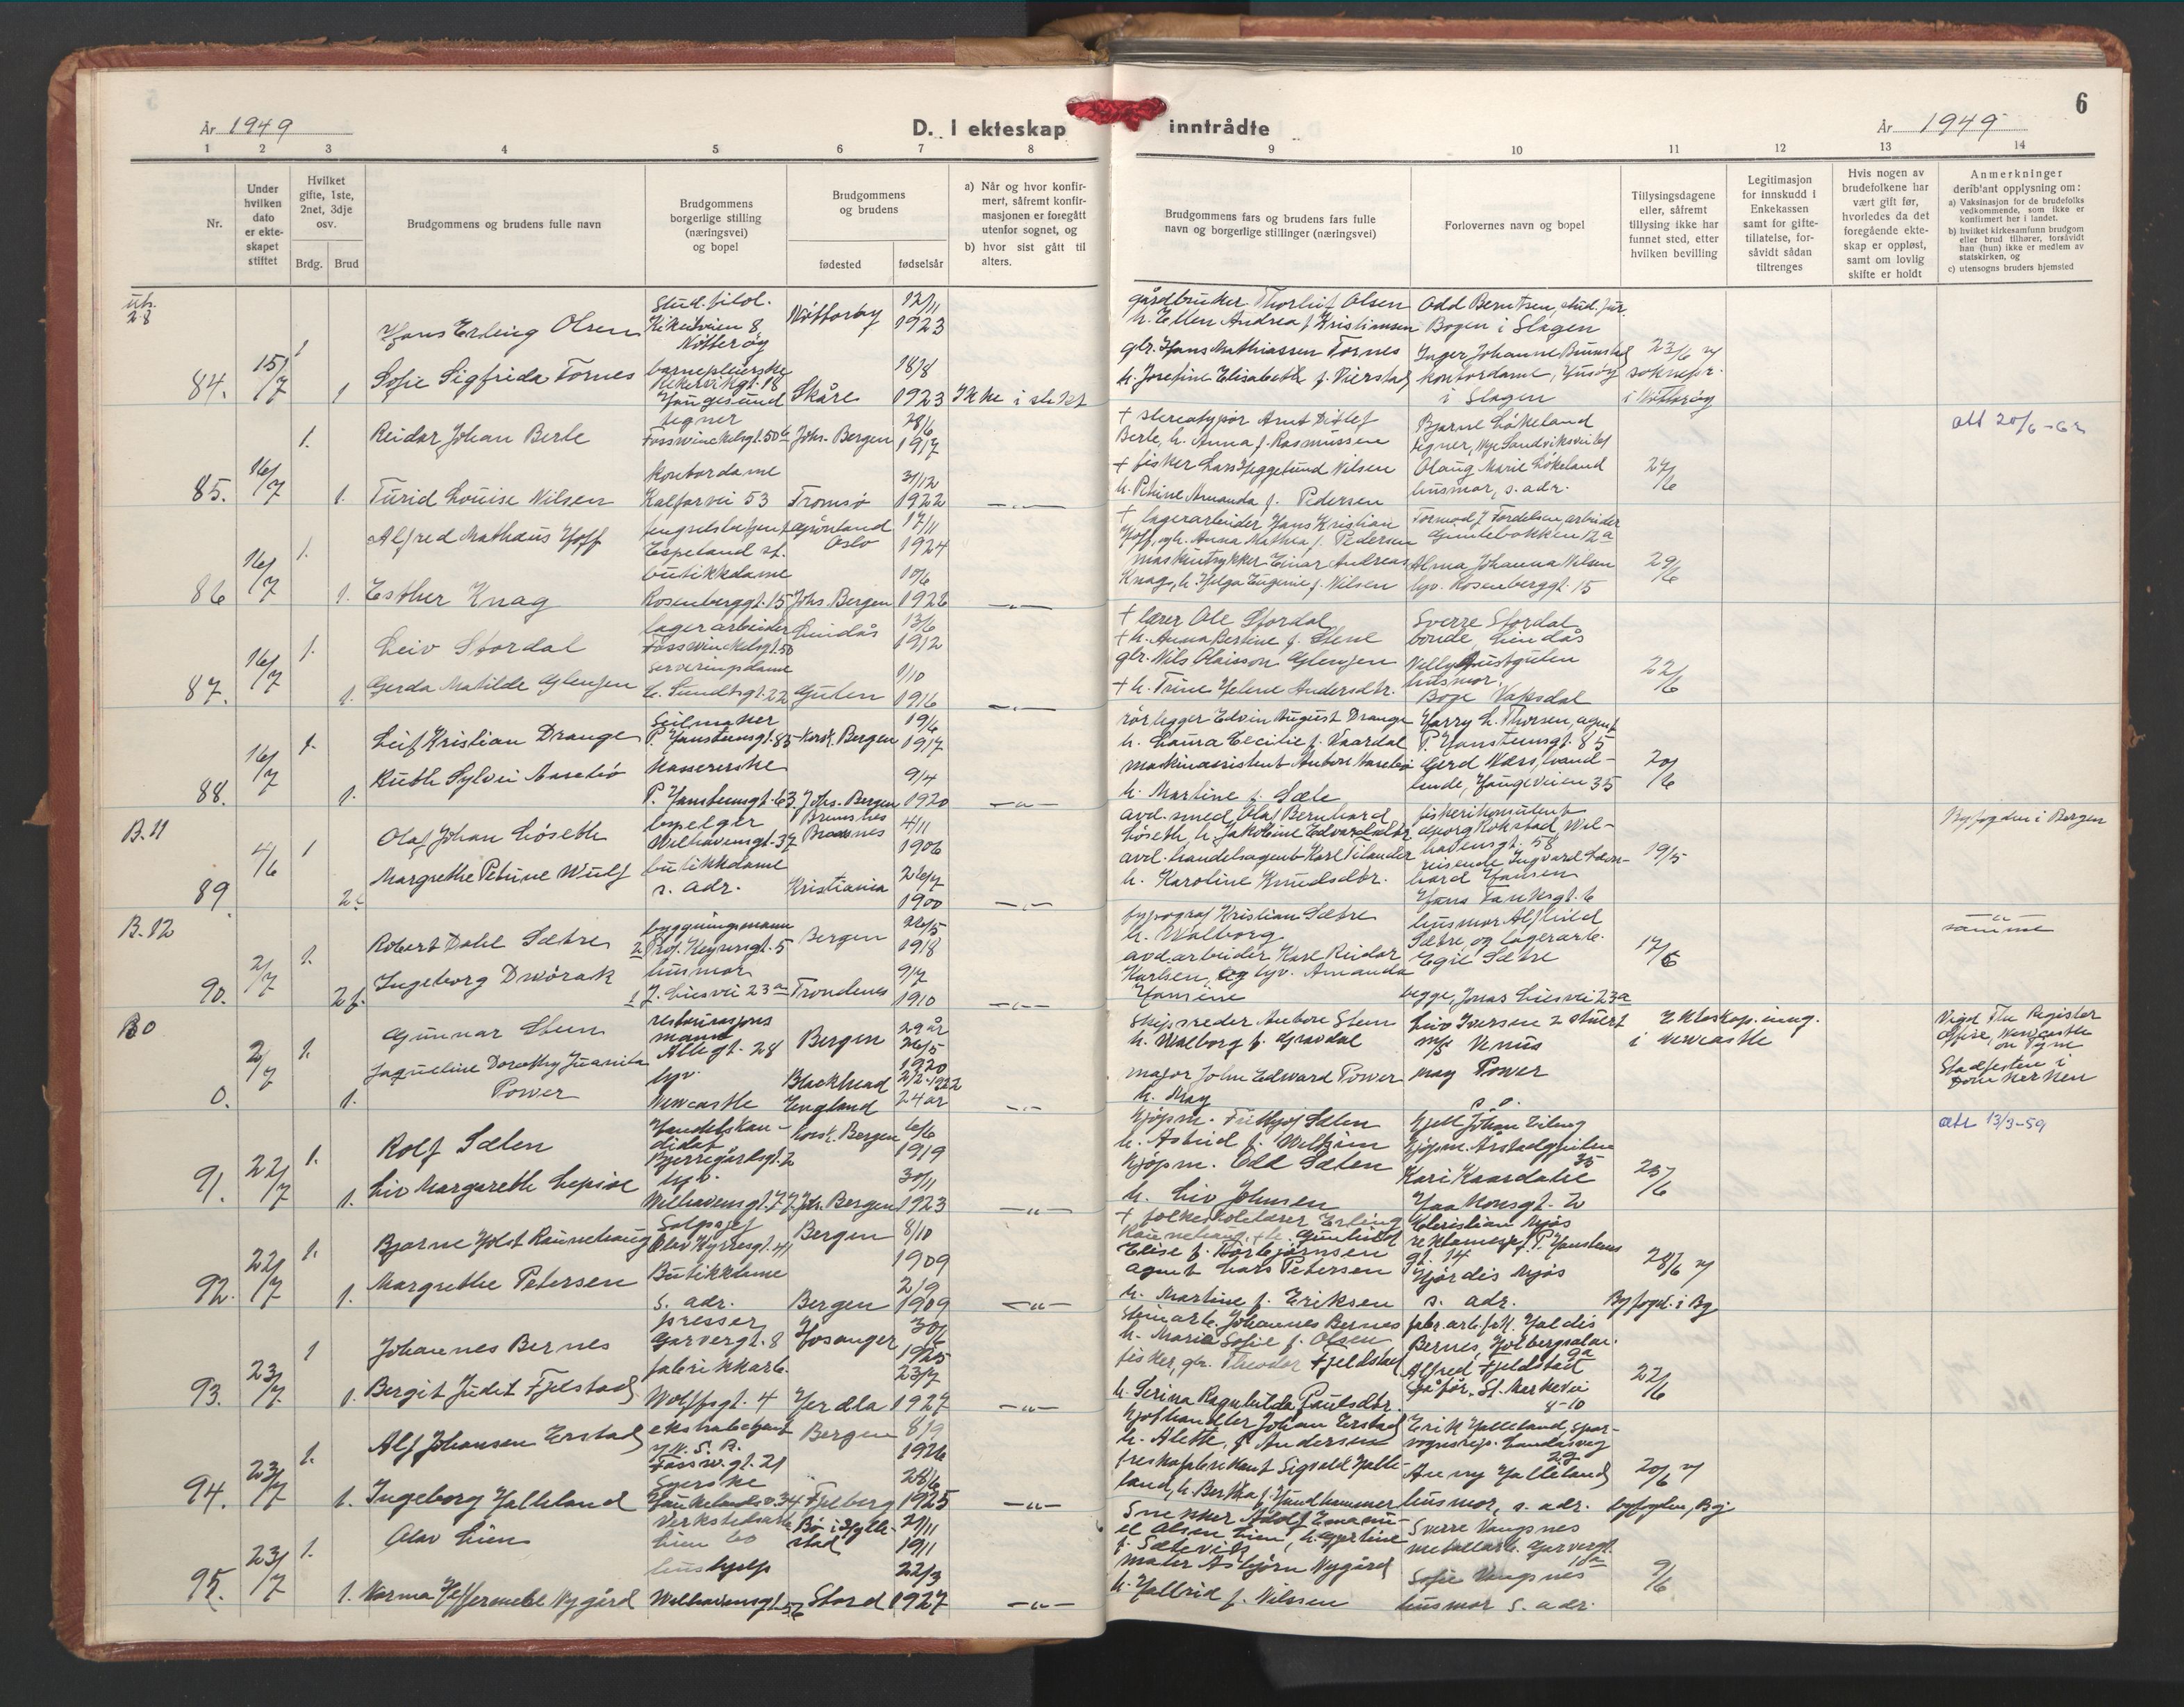 År 1949
D. I ekteskap inntrådte
År 1949
6
1 2 3 4 5 6 7 8 9 10 11 12 13 14
Nr.
Under hvilken dato er ekteskapet stiftet
Hvilket gifte, 1ste, 2net, 3dje osv.
Brdg. Brud
Brudgommens og brudens fulle navn
Brudgommens borgerlige stilling (næringsvei) og bopel
Brudgommens og brudens
fødested fødselsår
a) Når og hvor konfirmert, såfremt konfirmasjonen er foregått utenfor sognet, og
b) hvor sist gått til alters.
Brudgommens fars og brudens fars fulle navn og borgerlige stillinger (næringsvei)
Forlovernes navn og bopel
Tillysingsdagene eller, såfremt tillysing ikke har funnet sted, etter hvilken bevilling
Legitimasjon for innskudd i Enkekassen samt for giftetillatelse, forsåvidt sådan tiltrenges
Hvis nogen av brudefolkene har vært gift før, hvorledes da det foregående ekteskap er opløst, samt om lovlig skifte er holdt
Anmerkninger
deriblant opplysning om:
a) Vaksinasjon for de brudefolks vedkommende, som ikke er konfirmert her i landet.
b) hvilket kirkesamfunn brudgom eller brud tilhører, forsåvidt han (hun) ikke er medlem av statskirken, og
c) utensogns bruders hjemsted
84. 15/7 1 Hans Erling Olsen stud. filol. Kikutveien 8 Nøtterøy 12/11 1923
gårdbruker Thorleif Olsen h. Ellen Andrea f. Kristiansen
Odd Berntsen, stud. jur. Bogen i Slagen
1 Sofie Sigfrida Tornes barnepleierske Haugesund Skåre 18/8 1923 Ikke i slekt
gbr. Hans Mathiassen Tornes h. Josefine Elisabeth f. Vierstad
Inger Johanne kontordame, i Slagen
23/6 v/ soknepr. i Nøtterøy
85. 16/7 1. Reidar Johan Berle tegner Fosswinckelsgt. 50 b Johs. Bergen 28/6 1917
+ stereotypør Arnt Ditlef Berle, h. Anna f. Rasmussen
Bjarne Løkeland tegner, Nye Sandviksvei
att 20/6-62
1. Turid Louise Nilsen kontordame Kalfarvei 53 Tromsø 31/12 1922 —"—
+ fisker Lars Heggelund Nilsen h. Petrine Amanda f. Pedersen
Olaug Marie Løkeland husmor, s. adr.
27/6
86 16/7 1. Alfred Mathæus Hoff fengselsbetjent Espeland st. Grønland Oslo 17/11 1924
+ lagerarbeider Hans Kristian Hoff, og h. Anna Mathea f. Pedersen
Tormod J. Tordelsen arbeider 12a
1. Esther Knag butikkdame Rosenberggt. 15 Johs. Bergen 10/6 1926 —"—
maskintrykker Einar Andreas Knag, h. Helga Eugenie f. Nilsen
Alma Johanna Nilsen hv. Rosenberggt. 15
29/6
87. 16/7 1. Leiv Stordal lagerarbeider Fosswinckelsgt. 50 Lindås 13/6 1912
+ lærer Ole Stordal + h. Anna Bertine f. Stene
Sverre Stordal bonde Lindås
1. Gerda Matilde Glenjen serveringsdame C. Sundtsgt. 22 Gulen 1/10 1916 —"—
gbr. Nils Olaisson Glenjen + h. Trine Helene Andersdtr.
Nelly Austgulen husmor, Boge Vaksdal
22/6
88. 16/7 1. Leif Kristian Drange Seilmaker P. Hanssensgt. 85 Korsk. Bergen 19/6 1917
rørlegger Edvin August Drange h. Laura Cecilie f. Vaardal
Harry L. Thorsen, agent P. Hanssensgt. 85
1. Ruth Sylvi Aasebø kassererske P. Hanssensgt. 63. Johs. Bergen 9/4 1920 —"—
maskinassistent Anton Aasebø h. Martine f. Sæle
Gerd Næss, Haugeveien 35
20/6
B.11 89 4/6 1 Olaf Johan Løseth Welhavensgt. 37 4/11 1906
avd. smed Olaf Bernhard Løseth, h. Jakobine Edvardsdtr
fiskerikonsulent Georg Rokstad, Welhavensgt. 58
Byfogden i Bergen
2 Margrethe Petrine Wulf butikkdame s. adr. Kristiania 26/7 1900 —"—
avd. handelsagent Karl Tilander h. Karoline Knudsdtr.
reisende Ingvard Hansen Hans Tanksgt. 6
19/5
B.12 90. 2/7 1. Robert Dahl Sætre bygningsmann Prof. Keysersgt. 5 Bergen 1918
typograf Kristian Sætre h. Walborg
husmor Alfhild Sætre, og lagerarb. Egil Sætre begge, Jonas Liesvei 23a
17/6
—"— samme
2 f. Ingeborg Dworak husmor J. Liesvei 23a Trondenes 9/7 1910 —"—
avd arbeider Karl Reidar Karlsen, og hv. Amanda Hansine
B0 0. 2/7 1. Gunnar Steen restaurasjons mann Allegt. 28 Bergen 29 år 26/5 1920
skipsreder Anton Steen h. Walborg f. Gravdal
Leiv Iversen 2 stuert m/s Venus
Ekteskap inng. i Newcastle
Vigd The Register Office, Newcastle on Tyne
Stadfesten i Domkirken
1. Jaqueline Dorothy Juanita Power hv. Newcastle Blackhead England 2/2-1922 24 år —"—
major John Edward Power h. May
May Power
91. 22/7 1. Rolf Sælen Handelskandidat Bjerregårdsgt. 2 Korsk. Bergen 6/6 1919
kjøpm. Fridtjof Sælen h. Astrid f. Wilhjem
Kjell Johan kjøpm. Årstadgjeilen 35
att 13/3-59
1. Liv Margareth hv. Welhavensgt. 77. Joh. Bergen 30/11 1923 —"—
kjøpm. h. Liv Johnsen
Kari Haakonsgt. 2
23/6
92. 22/7 1. Bjarne Holst Raunehaug Salgssjef Olav Kyrresgt. 41 Bergen 8/10 1909
+ folkeskolelærer Erling Raunehaug, + h. Elise f. Torbjørnsen
Christian Mjøs reklamesjef P. Hanssens gt. 14
1. Margrethe Petersen Butikkdame s. adr. Bergen 2/9 1909 —"—
agent Lars Petersen h. Martine f. Eriksen
Hjørdis Mjøs s. adr.
28/6 v/ Byfogd. i Bg
93. 23/7 1 Johannes Bernes presser Garvergt. 8 Hosanger 30/6 1925
steinarb. Johannes Bernes h. Maria Sofie f. Olsen
fabr.arb. frk. Haldis Bernes, Holbergsalm. 9a
1. Bergit Judit Fjelstad fabrikkarb. Wolffsgt. 4 Herdla 23/7 1927 —"—
fisker, gbr. Theodor Fjeldstad h. Serina Ragnhilda Paulsdtr.
Alfred Fjeldstad sjåfør, St. Markevei 8-10
22/6
94. 23/7 1. Alf Johansen Erstad ekstrabetjent N.S.B. Fossw.gt. 21 Bergen 8/9 1926
kjøthandler Johan Erstad h. Alette, f. Andersen
Erik Halleland, sporvognsrep. Landåsveg 29
1. Ingeborg Halleland Syerske Haukelandsv. 34 Fjelberg 28/6 1925 —"—
treskofabrikant Sigvald Halleland, h. Bertha f. Sundhammer
Anny Halleland husmor, s. adr.
20/6 v/ byfogden, Bg.
95. 23/7 1. Olav Lien Verkstedsarb. Lien 60 Bø i Hyllestad 29/11 1911
Snekker Adolf Emanuel Olsen Lien, h. Gjertine f. Sætevik
Sverre Vangsnes metallarb. Garvergt. 10a
1. Norma Heffermehl Nygård hushjelp Welhavensgt. 56 Stord 22/3 1927 —"—
maler Asbjørn Nygård h. Hallrid f. Nilssen
Sofie Vangsnes husmor s. adr.
9/6